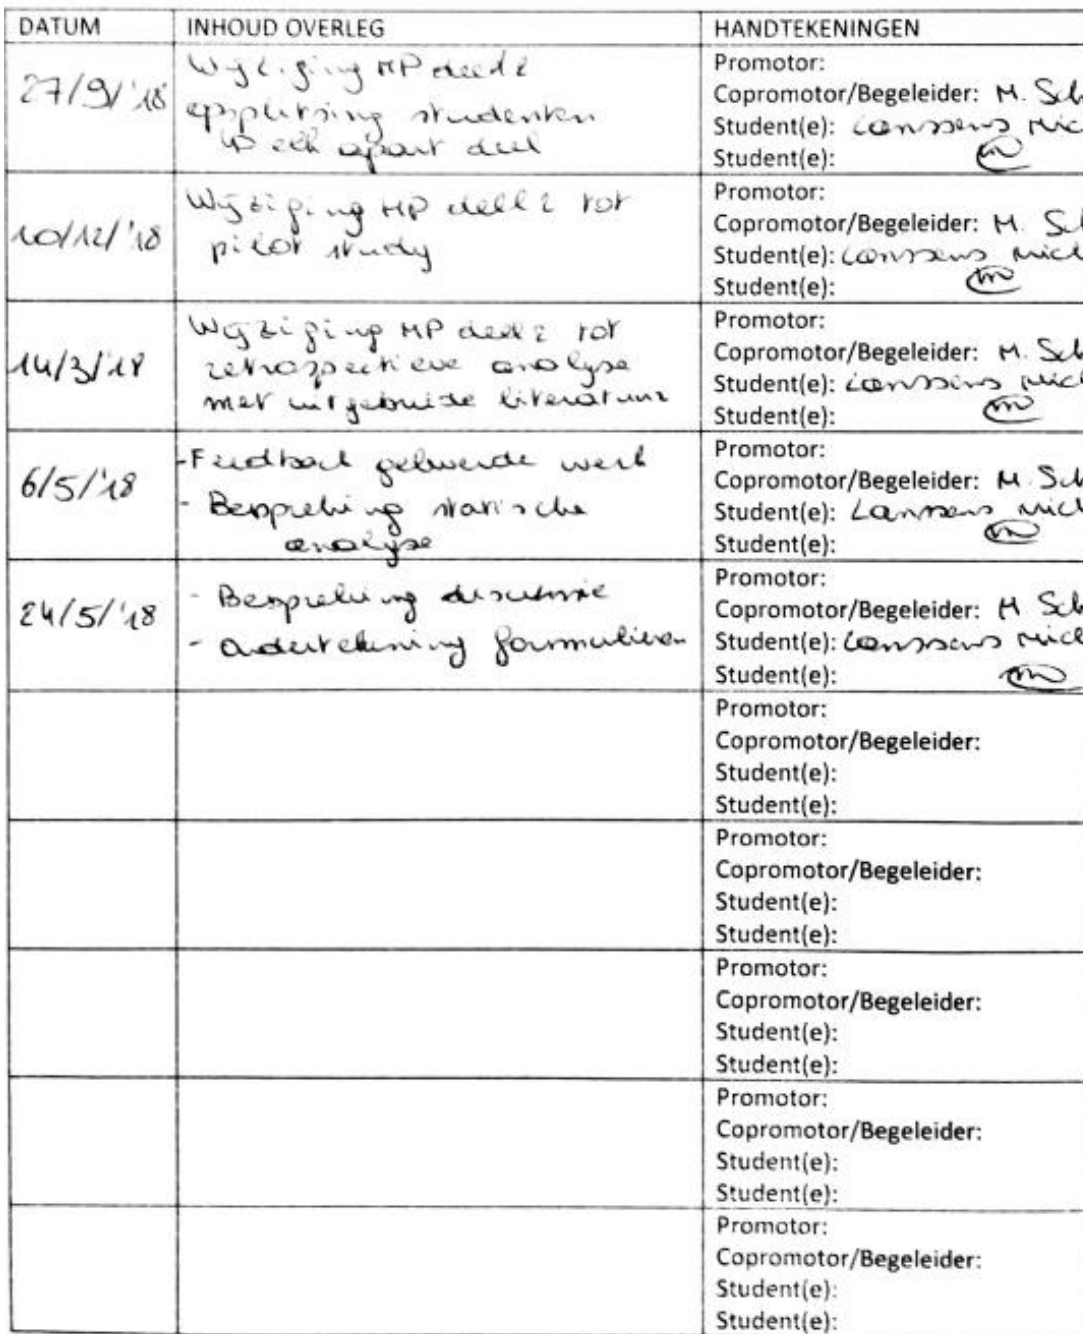 DATUM INHOUD OVERLEG HANDTEKENINGEN
27/9/'18
Wijziging MP deel 2
opsplitsing studenten
elk apart deel
Promotor:
Copromotor/Begeleider: M. Sch
Student(e): Lanssens Mich
Student(e):
10/12/'18
Wijziging MP deel 2 tot
pilot study
Promotor:
Copromotor/Begeleider: M. Sch
Student(e): Lanssens Mich
Student(e):
14/3/'18
Wijziging MP deel 2 tot
retrospectieve analyse
met uitgebreide literatuur
Promotor:
Copromotor/Begeleider: M. Sch
Student(e): Lanssens Mich
Student(e):
6/5/'18
- Feedback geleverde werk
- Bespreking statische
analyse
Promotor:
Copromotor/Begeleider: M. Sch
Student(e): Lanssens Mich
Student(e):
24/5/'18
- Bespreking discussie
- Ondertekening formulieren
Promotor:
Copromotor/Begeleider: M Sch
Student(e): Lanssens Mich
Student(e):
Promotor:
Copromotor/Begeleider:
Student(e):
Student(e):
Promotor:
Copromotor/Begeleider:
Student(e):
Student(e):
Promotor:
Copromotor/Begeleider:
Student(e):
Student(e):
Promotor:
Copromotor/Begeleider:
Student(e):
Student(e):
Promotor:
Copromotor/Begeleider:
Student(e):
Student(e):